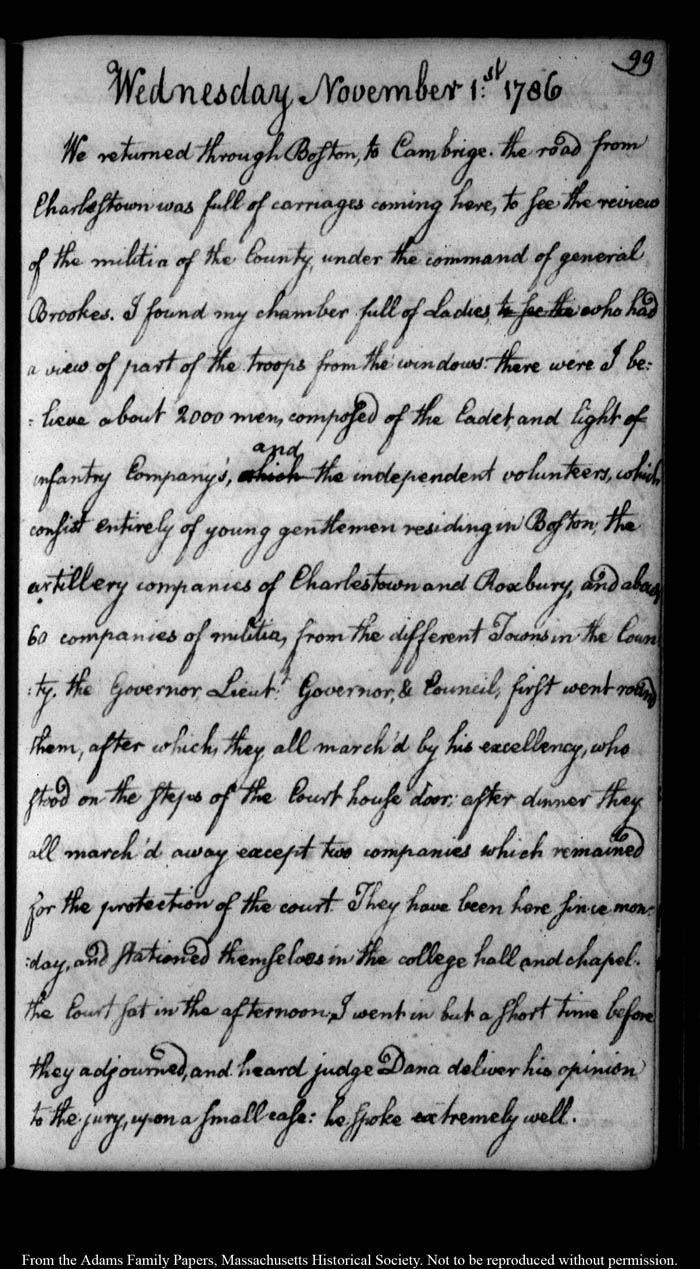 99
Wednesday November 1:st 1786
We returned through Boston, to Cambrige. the road from
Charlestown was full of carriages coming here, to see the review
of the militia of the County, under the command of general
Brookes. I found my chamber full of Ladies, to see the who had
a view of part of the troops from the windows: there were I be:
:lieve about 2000 men, composed of the Cadet, and light of
infantry Company's, which and the independent volunteers, which
consist entirely of young gentlemen residing in Boston; the
artillery companies of Charlestown and Roxbury, and about
60 companies of militia, from the different Towns in the Coun
:ty. the Governor, Lieut:t Governor, & Council, first went round
them, after which, they all march'd by his excellency, who
stood on the steps of the Court house door: after dinner they
all march'd away except two companies which remained
for the protection of the court. They have been here since mon:
:day, and stationed themselves in the college hall and chapel.
the Court sat in the afternoon; I went in but a short time before
they adjourned, and heard judge Dana deliver his opinion
to the jury, upon a small case: he spoke extremely well.
From the Adams Family Papers, Massachusetts Historical Society. Not to be reproduced without permission.